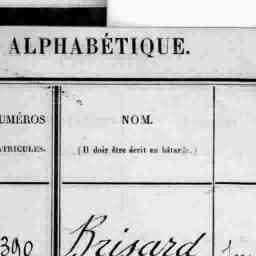 ALPHABÉTIQUE.
UMÉROS
ATRICULES.
NOM.
(Il doit être écrit en bâtarde.)
390
Brisard